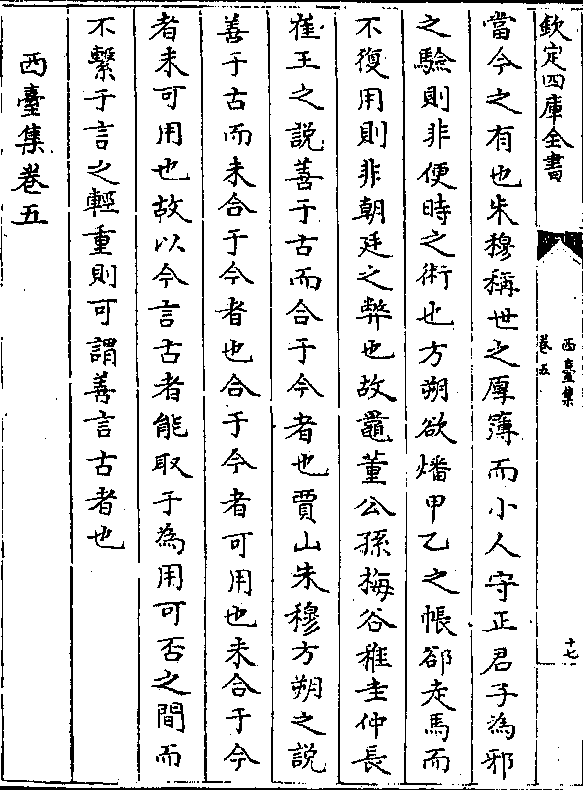 欽定四庫全書
西臺集
卷五
十七
當今之有也朱穆稱世之厚簿而小人守正君子為邪
之驗則非便時之術也方朔欲燔甲乙之帳郤走馬而
不復用則非朝廷之弊也故鼂董公孫梅谷稚圭仲長
崔王之說善于古而合于今者也賈山朱穆方朔之說
善于古而未合于今者也合于今者可用也未合于今
者未可用也故以今言古者能取于為用可否之間而
不繫于言之輕重則可謂善言古者也
西臺集卷五